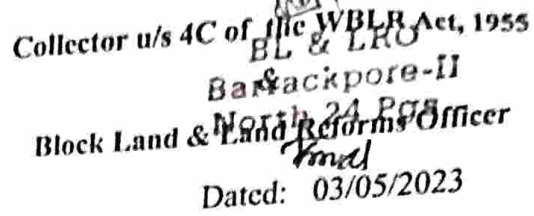 Collector u/s 4C of the WBLR Act, 1955
BL & LRO
&
Barrackpore-II
North 24 Pgs
Block Land & Land Reforms Officer
Dated: 03/05/2023